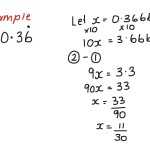 ample
0.36̇
Let x = 0.3666
x10 x10
10x = 3.666
② - ①
9x = 3.3
90x = 33
x = 33/90
x = 11/30